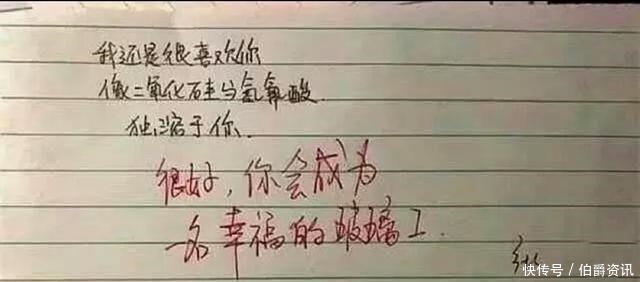 我还是很喜欢你
像二氧化硅与氢氟酸
独溶于你.
很好,你会成为
一名幸福的玻璃工.
快传号/伯爵资讯